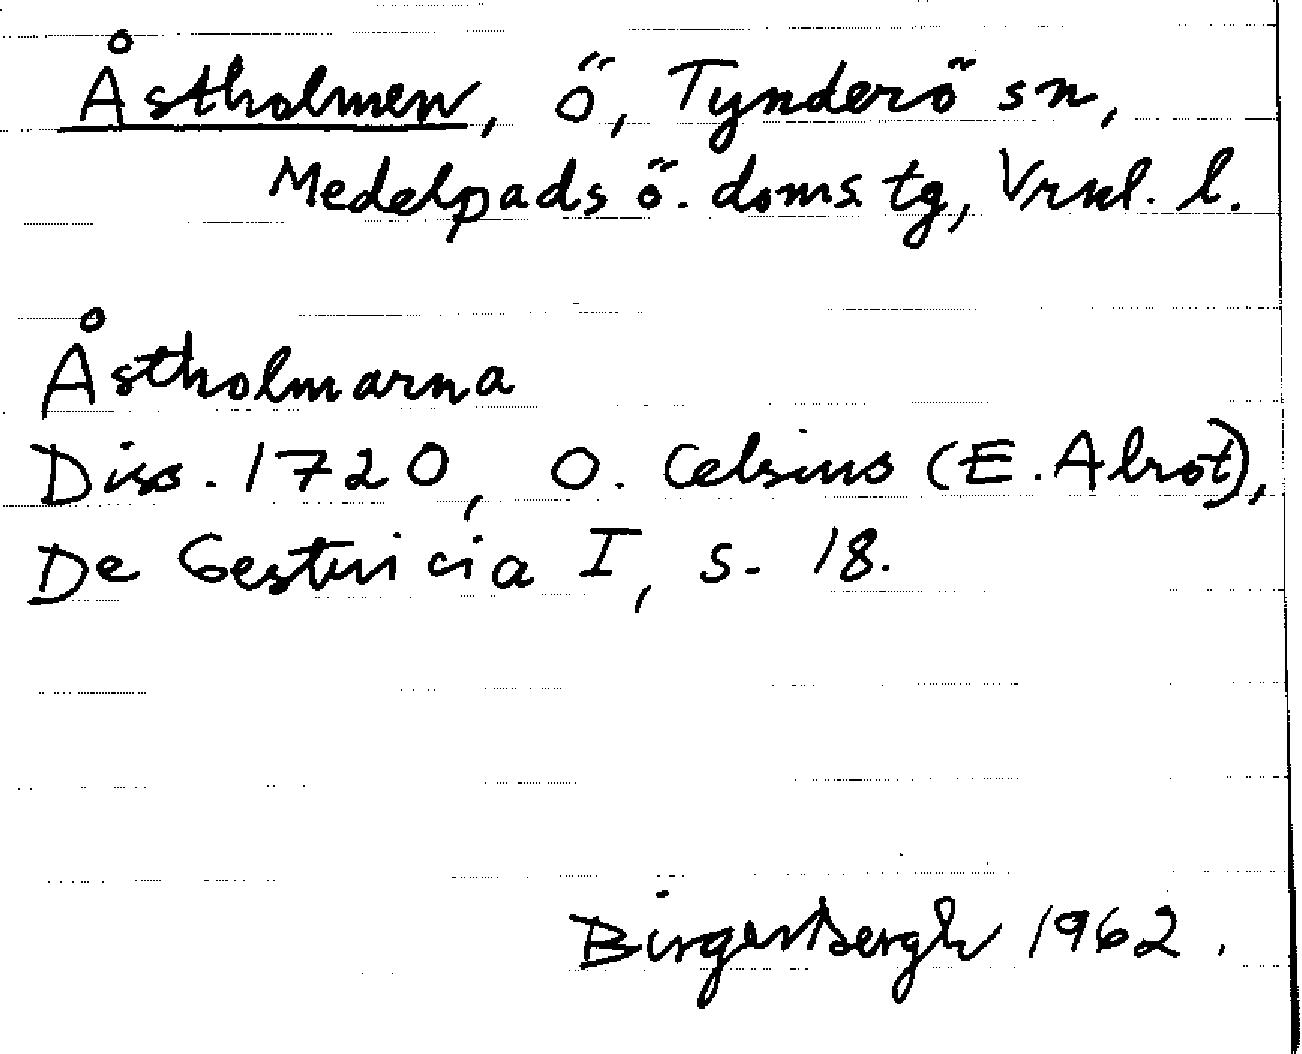 Åstholmen, ö, Tynderö sn,
Medelpads ö. doms. tg, Vrnl. l.
Åstholmarna
Diss. 1720, O. Celsius (E. Alrot),
De Gestricia I, s. 18.
Birger Bergh 1962.